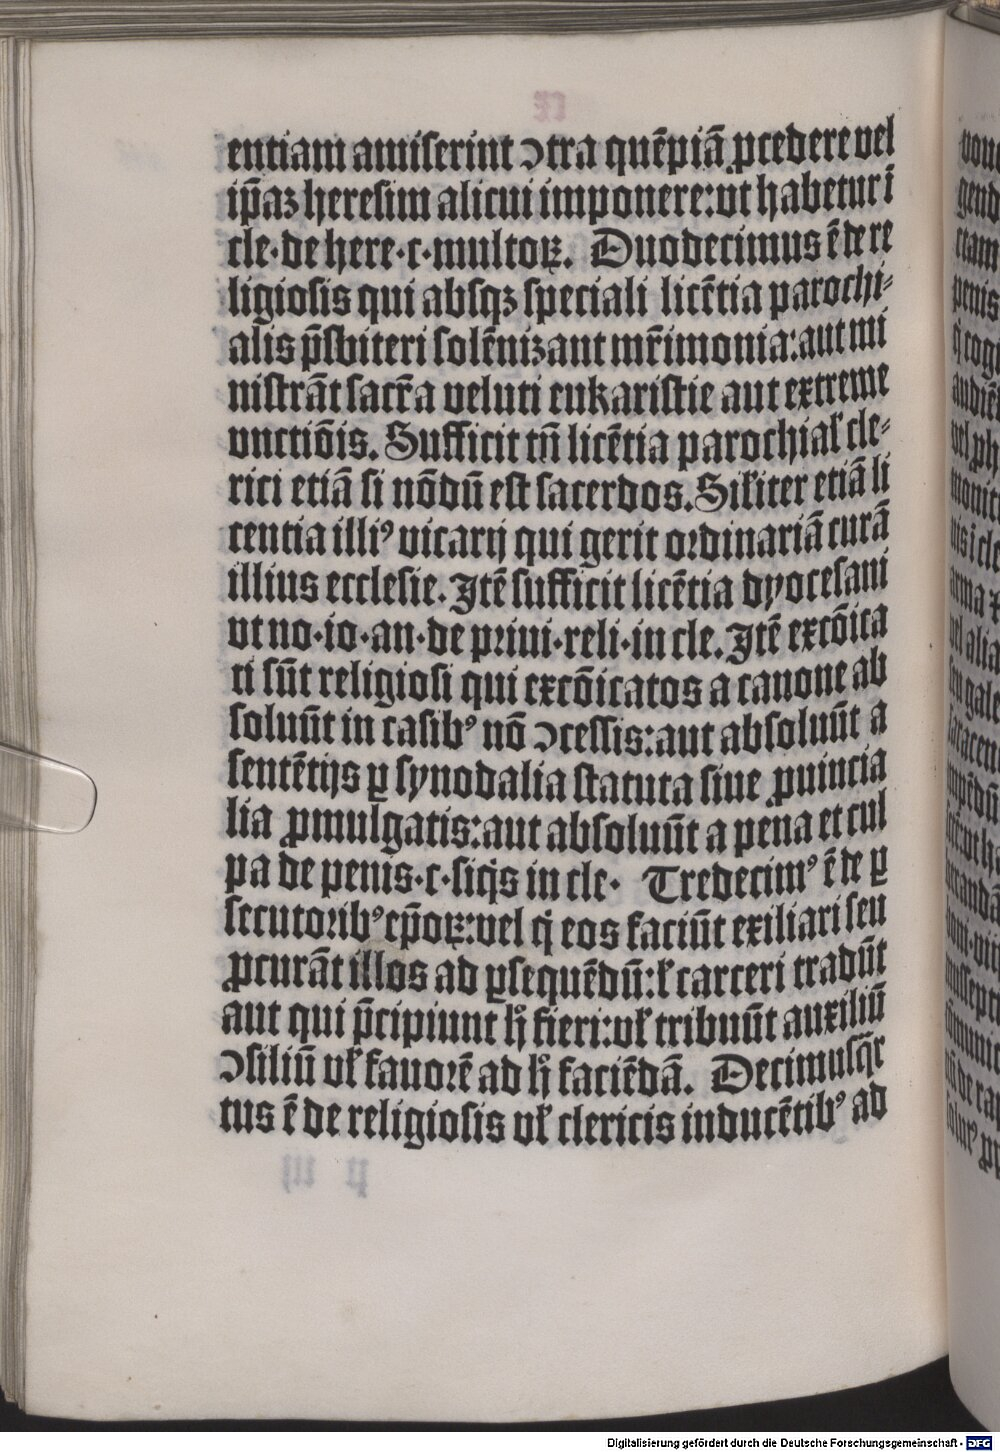 entiam amiserint ↄtra quēpiā ꝓcedere vel
ip̄aꝫ heresim alicui imponere: vt habetur ī
cle·de here·c·multoꝝ. Duodecimus ē de re
ligiosis qui absqꝫ speciali licētia parochi⸗
alis p̄sbiteri solēnizant mr̄imonia: aut mi
nistrāt sacr̄a veluti eukaristie aut extreme
vnctiōis. Sufficit tn̄ licētia parochial̕ cle⸗
rici etiā si nōdū est sacerdos. Sil̕iter etiā li
centia illiꝰ vicarij qui gerit ordinariā curā
illius ecclesie. Itē sufficit licētia dyocesani
vt no·io·an·de priui·reli·in cle. Itē excōica
ti sūt religiosi qui excōicatos a canone ab
soluūt in casibꝰ nō ↄcessis: aut absoluūt a
sentētijs ꝑ synodalia statuta siue ꝓuincia
lia ꝓmulgatis: aut absoluūt a pena et cul
pa de penis·c·siq̇s in cle· Tredecimꝰ ē de ꝑ
secutoribꝰ ep̄oꝝ: vel q̇ eos faciūt exiliari seu
ꝓcurāt illos ad ꝑsequēdū: l̕ carceri tradūt
aut qui p̄cipiunt h̊ fieri: vl̕ tribuūt auxiliū
ↄsiliū vl̕ fauorē ad h̊ faciēdā. Decimusq̄r
tus ē de religiosis vl̕ clericis inducētibꝰ ad
Digitalisierung gefördert durch die Deutsche Forschungsgemeinschaft - DFG